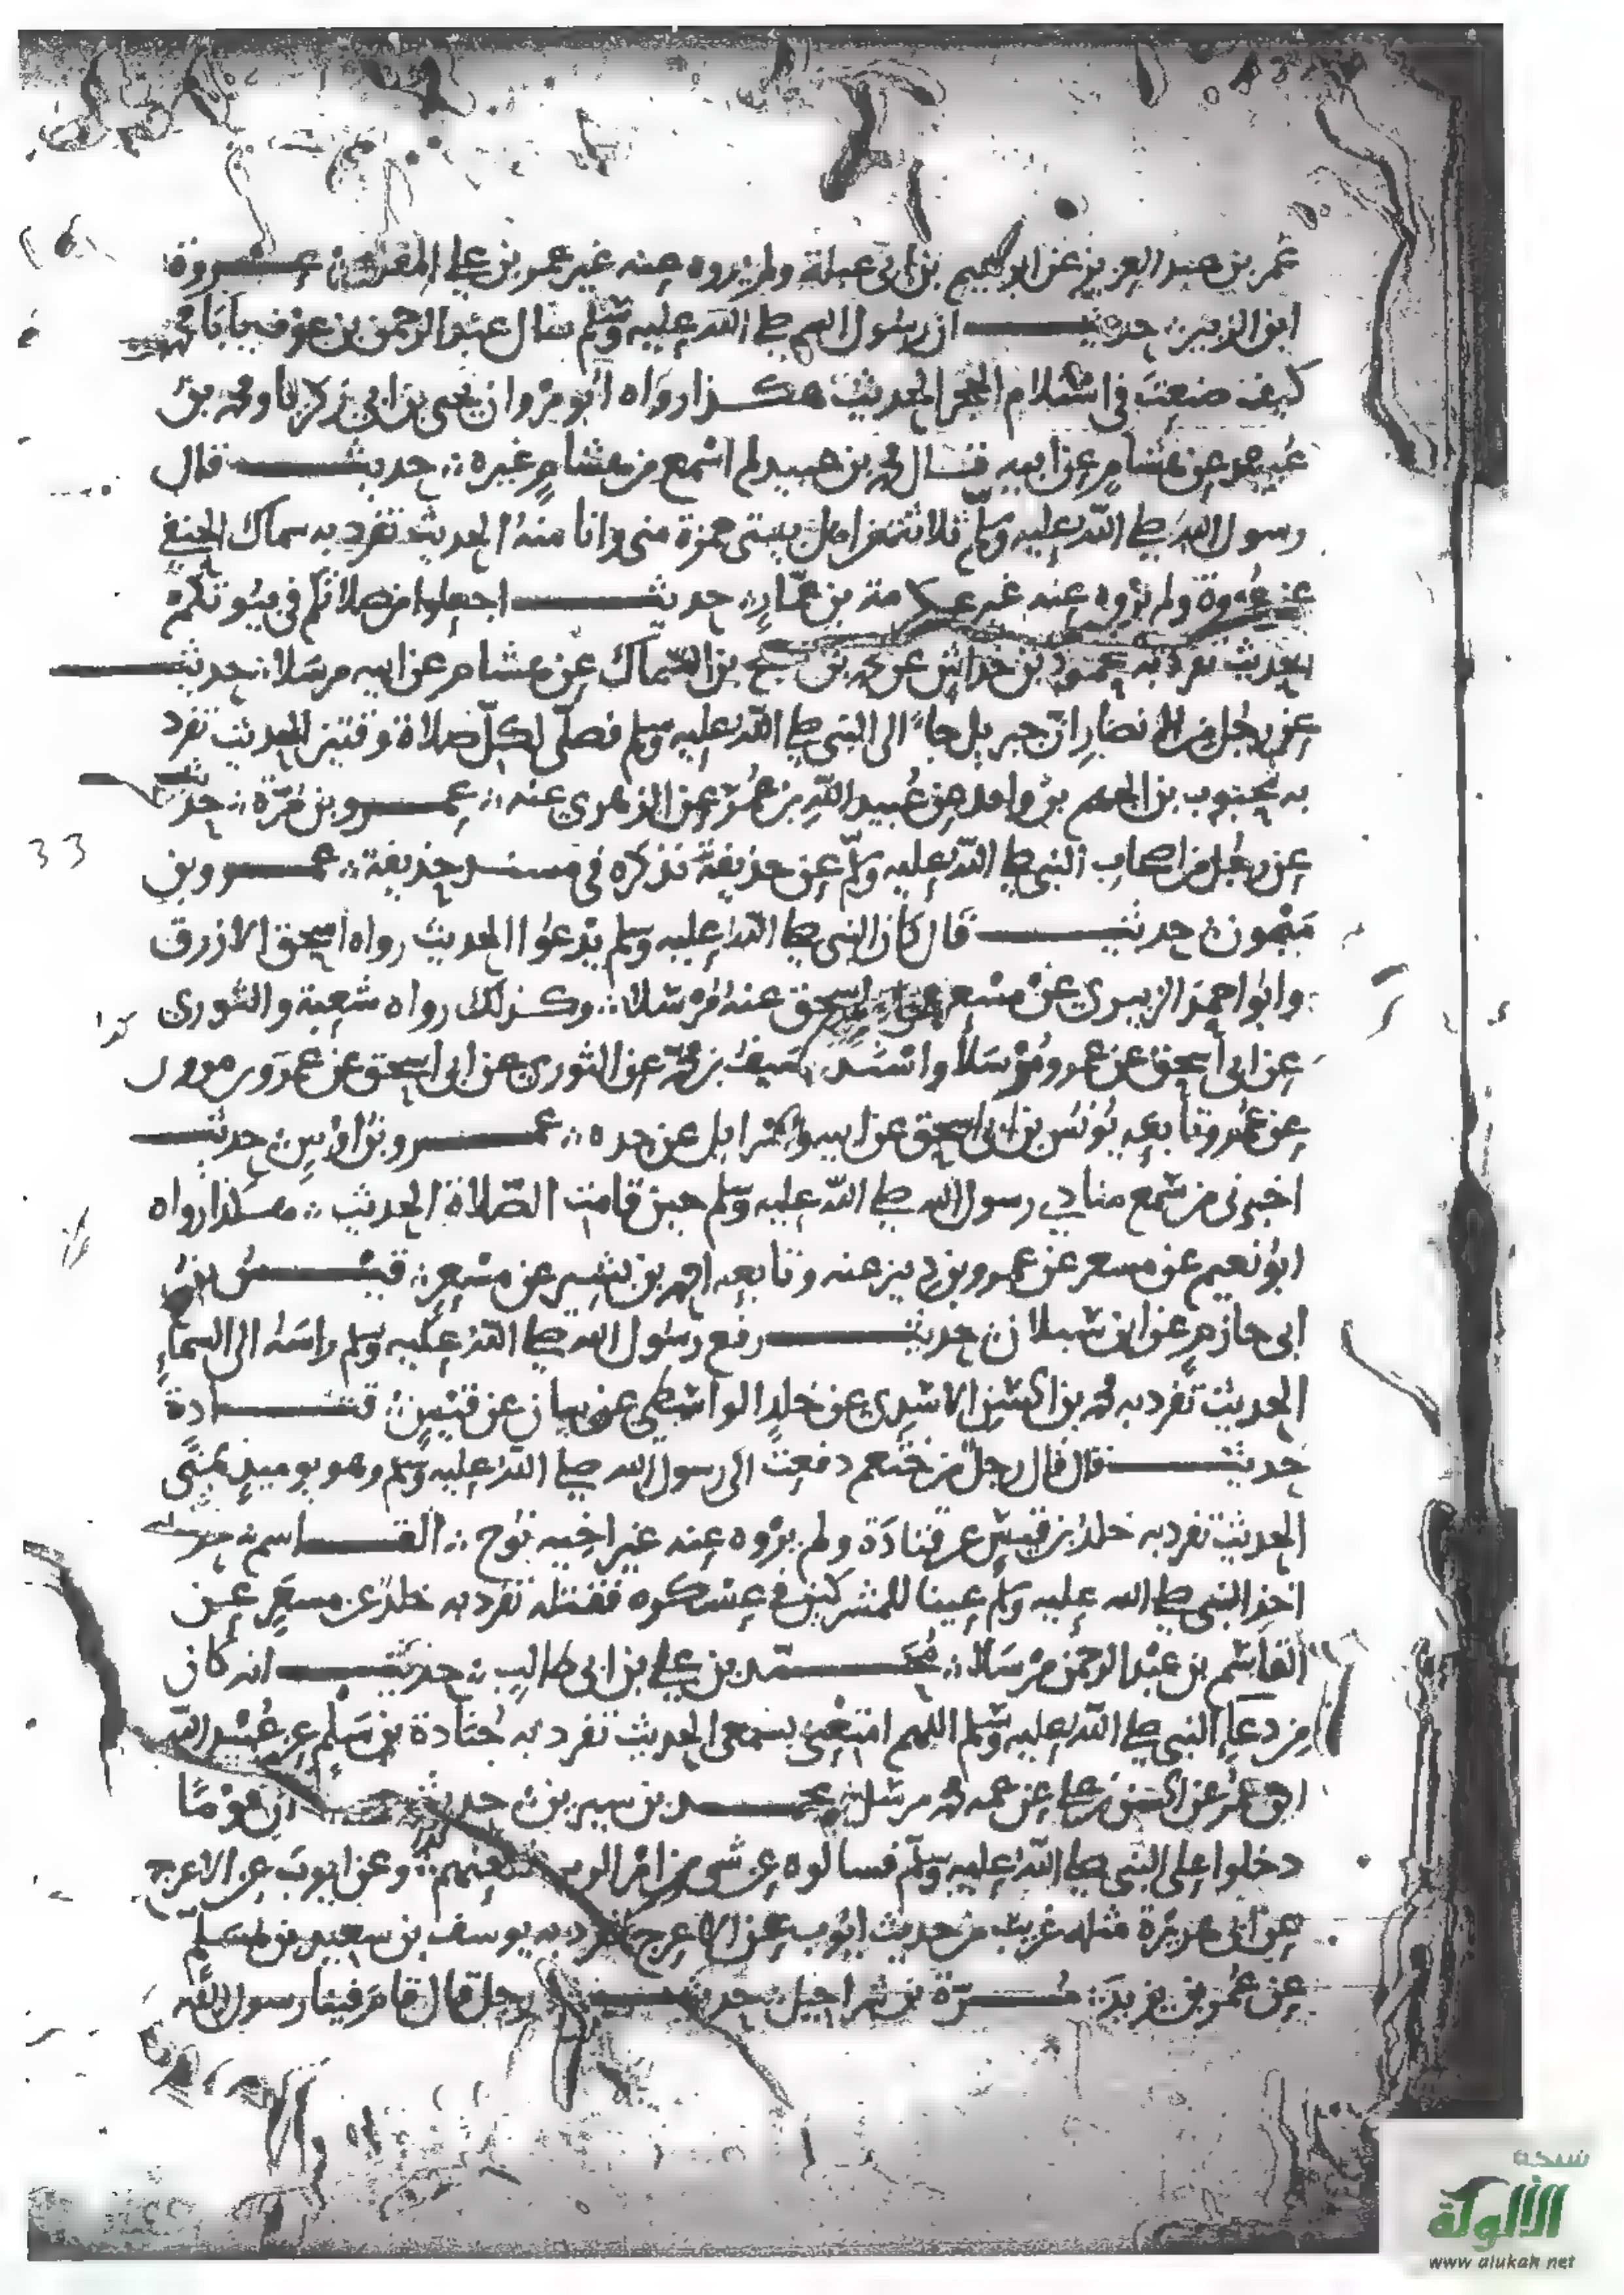 عمر بن عبد العزيز عن ابرهيم بن ابي عبلة ولم يروه عنه غير عمر بن علي المقدمي عــروة
ابن الزبير حديث ان رسول الله صلى الله عليه وسلم سال عبد الرحمن بن عوف يابا محمد
كيف صنعت في استلام الحجر الحديث هكذا رواه ابو مروان يحيى بن ابي زكريا ومحمد بن
عن هشام عن ابيه قال محمد بن عبيد لم اسمع من هشام غيره حديث قال
رسول الله صلى الله عليه وسلم من اهل بيتي حمزة مني وانا منه الحديث تفرد به سماك الحنفي
عن عروة ولم يروه عنه غير عكرمة بن عمار حديث اجعلوا من صلاتكم في بيوتكم
الحديث تفرد به محمود بن خداش عن محمد بن صبيح بن السماك عن هشام عن ابيه مرسلا حديث
عن رجل من الانصار ان جبريل جاء الى النبي صلى الله عليه وسلم فصلى لكل صلاة وقتين الحديث تفرد
به بن الجهم بن واقد عن عبيد الله بن عمر عن الزهري عنه عمرو بن مرة حديث
عن رجل من اصحاب النبي صلى الله عليه وسلم عن حذيفة نذكره في مسند حذيفة عمرو بن
ميمون حديث قال كان النبي صلى الله عليه وسلم يدعوا الحديث رواه اسحق الازرق
وابو احمد الزبيري عن مسعر عن اسحق عنه مرسلا وكذلك رواه شعبة والثوري
عن ابي اسحق عن عمرو مرسلا واسند سيف بن محمد عن الثوري عن ابي اسحق عن عمرو
عن عمر وتابعه يونس بن ابي اسحق عن ابيه واسرايل عن جده عمرو بن اوس حديث
اخبرني من سمع منادي رسول الله صلى الله عليه وسلم حين قامت الصلاة الحديث هكذا رواه
ابو نعيم عن مسعر عن عمرو بن دينر عنه وتابعه محمد بن بشر عن مسعر قيس بن
ابي حازم عن ابن شبلان حديث رفع رسول الله صلى الله عليه وسلم راسه الى السماء
الحديث تفرد به محمد بن الحسن الاسدي عن خلد الواسطي عن بيان عن قيس قتادة
حديث قال قال رجل من خثعم دفعت الى رسول الله صلى الله عليه وسلم وهو يوميذ بمنى
الحديث تفرد به خلد بن قيس عن قتادة ولم يروه عنه غير اخيه نوح القاسم حديث
اخذ النبي صلى الله عليه وسلم عينا للمشركين في عسكره فقتله تفرد به خلد عن مسعر عن
القاسم بن عبد الرحمن مرسلا محمد بن علي بن ابي طالب حديث انه كان
من دعا النبي صلى الله عليه وسلم اللهم امتعني بسمعي الحديث تفرد به جنادة بن سلم عن عبيد الله
ابن عمر عن الحسن بن علي عن عمه محمد مرسل محمد بن سيرين حديث ان قوما
دخلوا على النبي صلى الله عليه وسلم فسالوه عن شي من امر وعن ايوب عن الاعرج
عن ابي هريرة مثله غريب من حديث ايوب عن الاعرج تفرد به يوسف بن سعيد بن مسلم
عن عمرو بن يزيد مرة بن شراحيل حديث رجل قال قام فينا رسول الله
33
شبكة
الألوكة
www alukah net